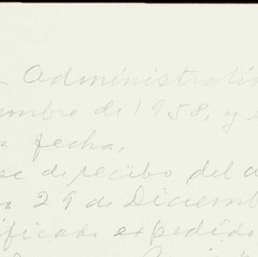 Administrativ
embre de 1958, y
fecha.
se de recibo del a
29 de Diciem
ificado expedido